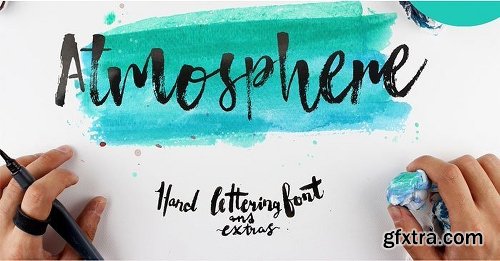 Atmosphere
Hand lettering font
and
extras
gfxtra.com